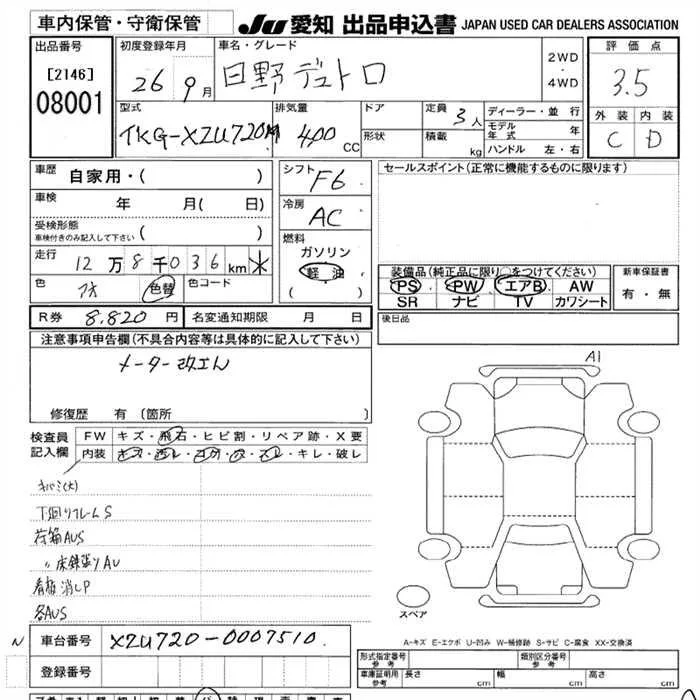 車内保管・守衛保管
JU 愛知 出品申込書 JAPAN USED CAR DEALERS ASSOCIATION
出品番号
[2146]
08001
初度登録年月
26年9月
車名・グレード
日野デュトロ
2WD
・
4WD
評価点
3.5
外装 内装
C D
型式
TKG-XZU720M
排気量
400cc
ドア
形状
定員 3人
積載 kg
ディーラー・並行
モデル年式 年
ハンドル 左・右
車歴 自家用・( )
車検 年 月( 日)
受検形態
車検付きのみ記入して下さい ( )
走行 12万8千036km
色 色替 色コード
R券 8,820円 名変通知期限 月 日
シフト
F6
冷房
AC
燃料
ガソリン
軽油
( )
セールスポイント(正常に機能するものに限ります)
装備品(純正品に限り○をつけてください)
PS PW エアB AW
SR ナビ TV カワシート
新車保証書
有・無
後日品
注意事項申告欄(不具合内容等は具体的に記入して下さい)
メーター改ざん
修復歴 有(箇所 )
検査員記入欄
FW キズ・飛石・ヒビ割・リペア跡・X要
内装 キズ・汚レ・コゲ・穴・スレ・キレ・破レ
キバミ(大)
下廻りフレームS
荷箱AUS
〃床鉄張りAU
看板消しP
各AUS
A1
スペア
A-キズ E-エクボ U-凹み W-補修跡 S-サビ C-腐食 XX-交換済
N
車台番号 XZU720-0007510
登録番号
形式指定番号
参考
類別区分番号
参考
車庫証明用
参考
長さ cm 幅 cm 高さ cm